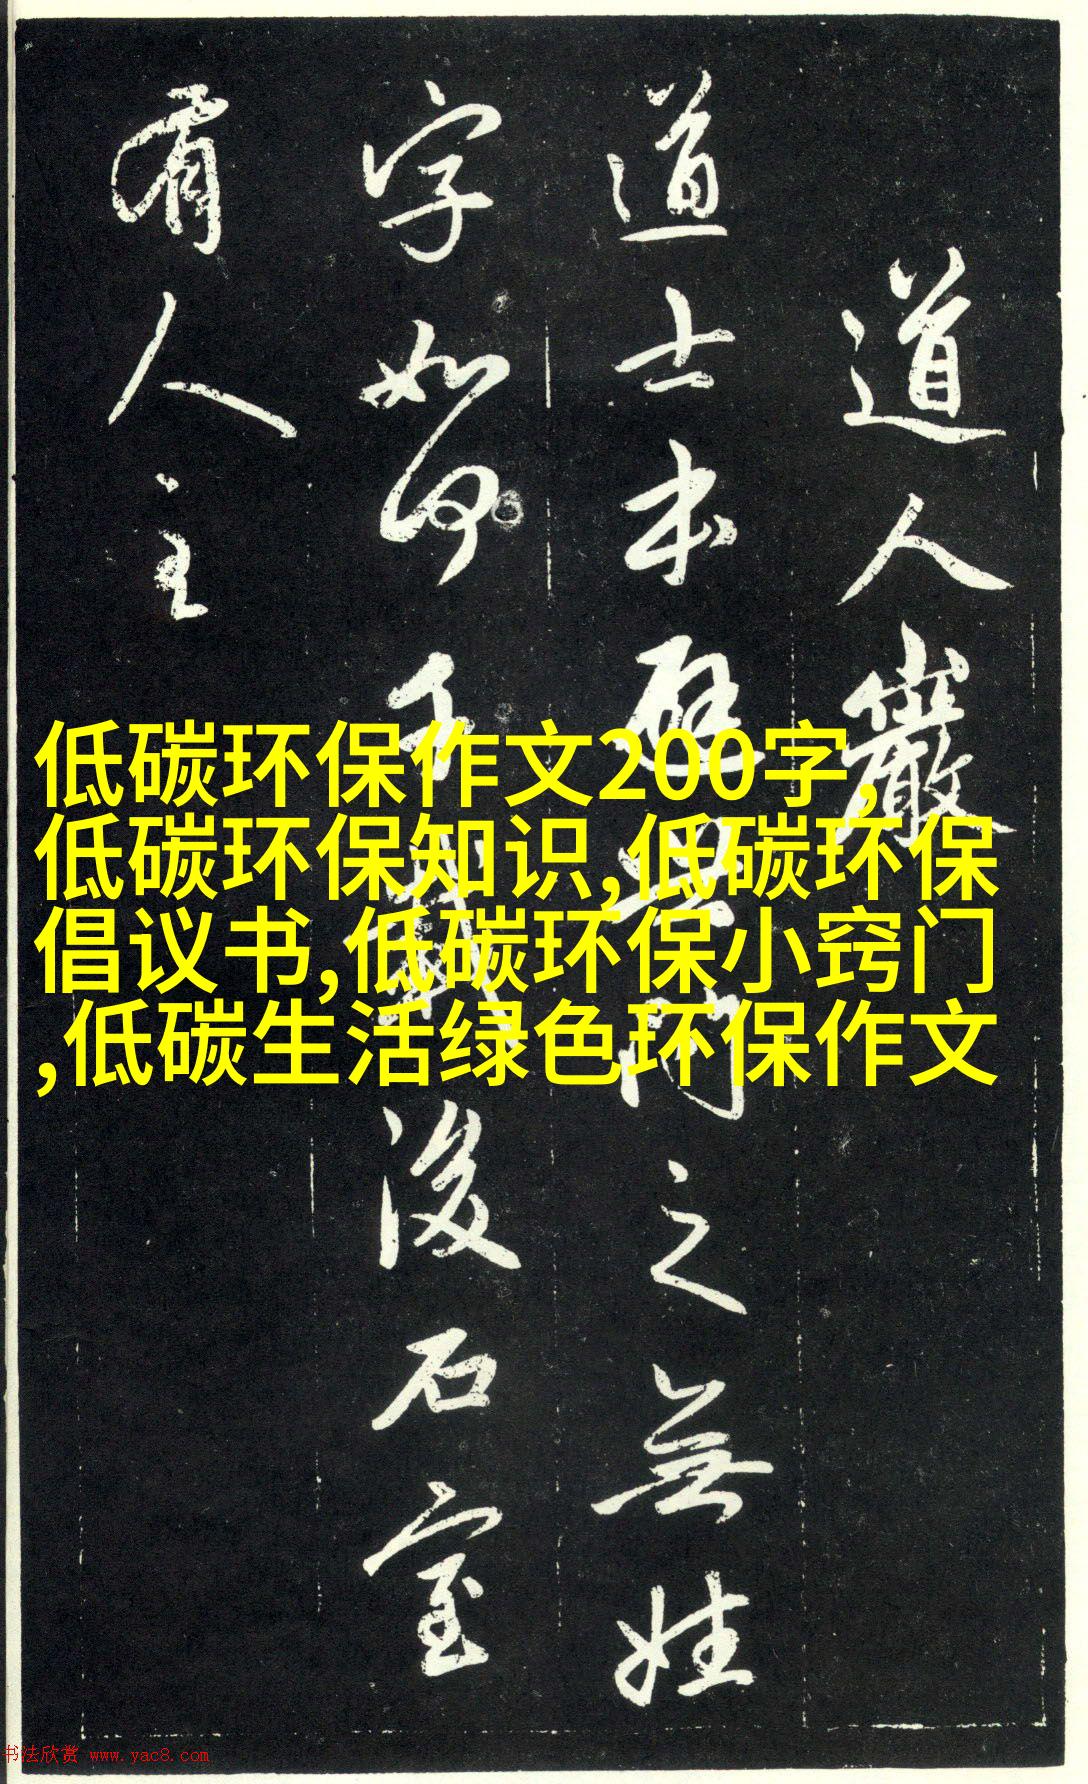 道人巖
道士本避世門之無姓
字如何千載後石室
有人主
低碳环保作文200字,
低碳环保知识,低碳环保
倡议书,低碳环保小窍门
,低碳生活绿色环保作文
书法欣赏 www.yac8.com